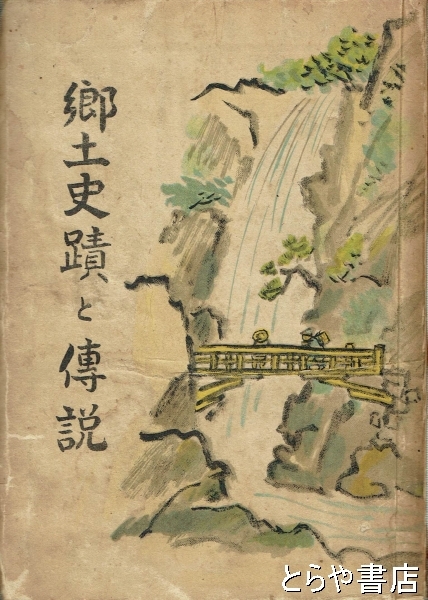 鄕土史蹟と傳説
とらや書店